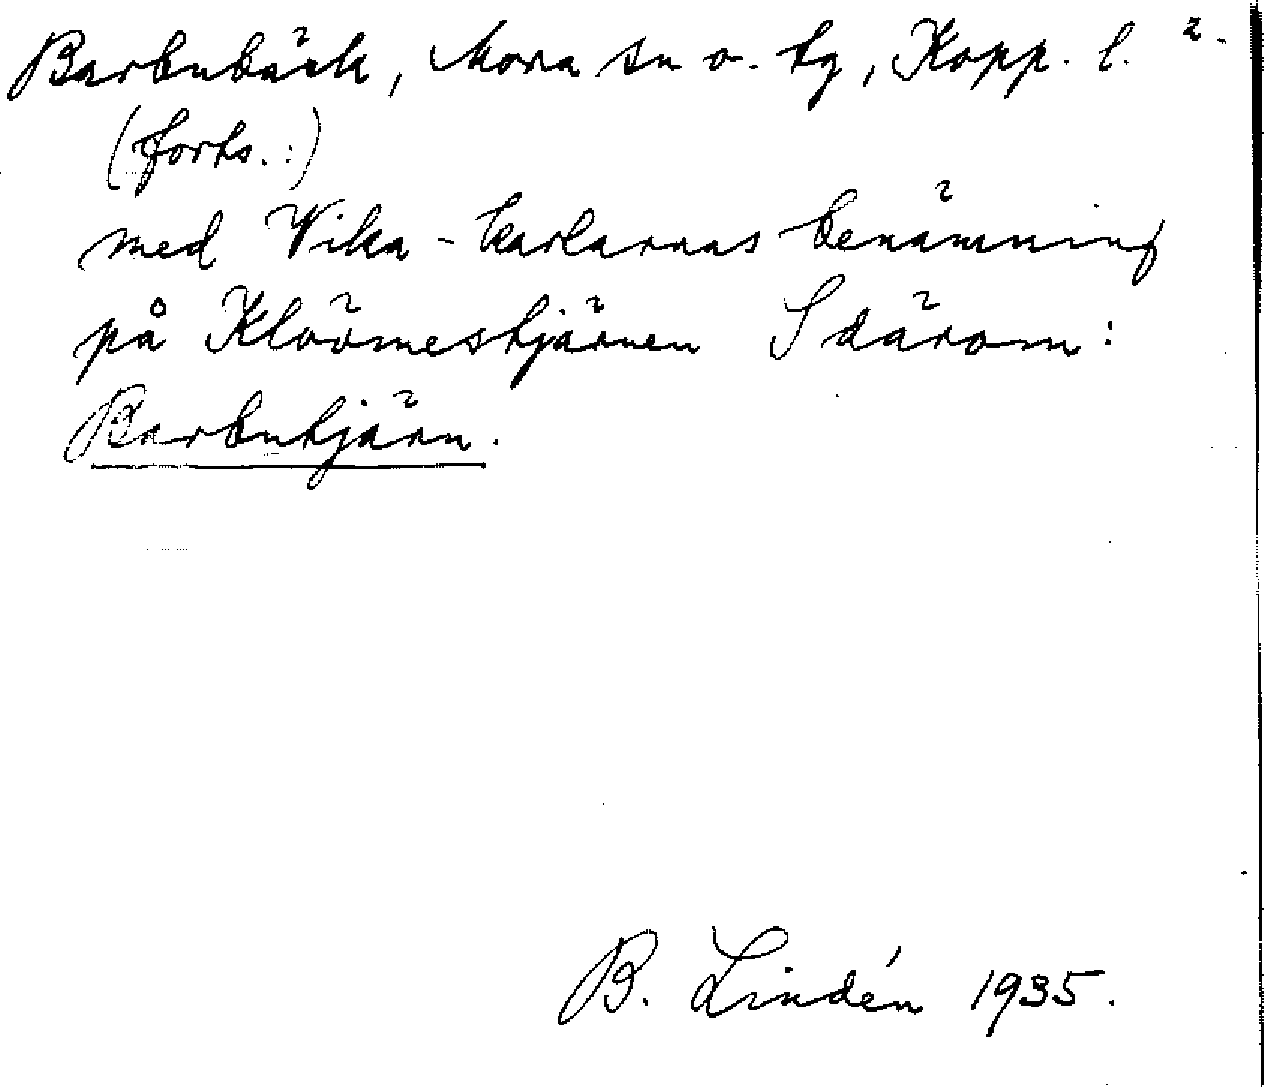 Barbubäck, Mora sn o. tg, Kopp. l. 2.
(forts.:)
med Vika-karlarnas benämning
på Klövmestjärnen S därom:
Barbutjärn.
B. Lindén 1935.